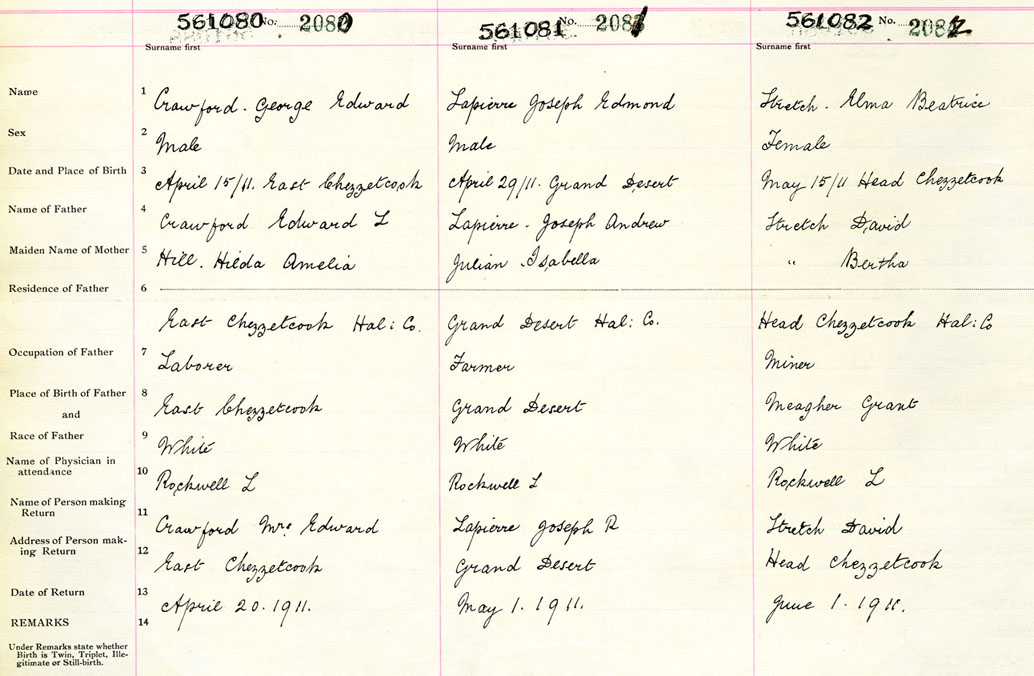 561080 No. 2080 561081 No. 2081 561082 No. 2082
Surname first Surname first Surname first
Name 1 Crawford. George Edward Lapierre Joseph Edmond Stretch. Elma Beatrice
Sex 2 Male Male Female
Date and Place of Birth 3 April 15/11. East Chezzetcook April 29/11. Grand Desert May 15/11 Head Chezzetcook
Name of Father 4 Crawford Edward L Lapierre. Joseph Andrew Stretch David
Maiden Name of Mother 5 Hill. Hilda Amelia Julian Isabella " Bertha
Residence of Father 6
East Chezzetcook Hal: Co. Grand Desert Hal: Co. Head Chezzetcook Hal: Co
Occupation of Father 7 Laborer Farmer Miner
Place of Birth of Father 8 East Chezzetcook Grand Desert Meagher Grant
and
Race of Father 9 White White White
Name of Physician in
attendance 10 Rockwell L Rockwell L Rockwell L
Name of Person making
Return 11 Crawford Mrs Edward Lapierre Joseph R Stretch David
Address of Person mak-
ing Return 12 East Chezzetcook Grand Desert Head Chezzetcook
Date of Return 13 April 20. 1911. May 1. 1911. June 1. 1911.
REMARKS 14
Under Remarks state whether
Birth is Twin, Triplet, Ille-
gitimate or Still-birth.